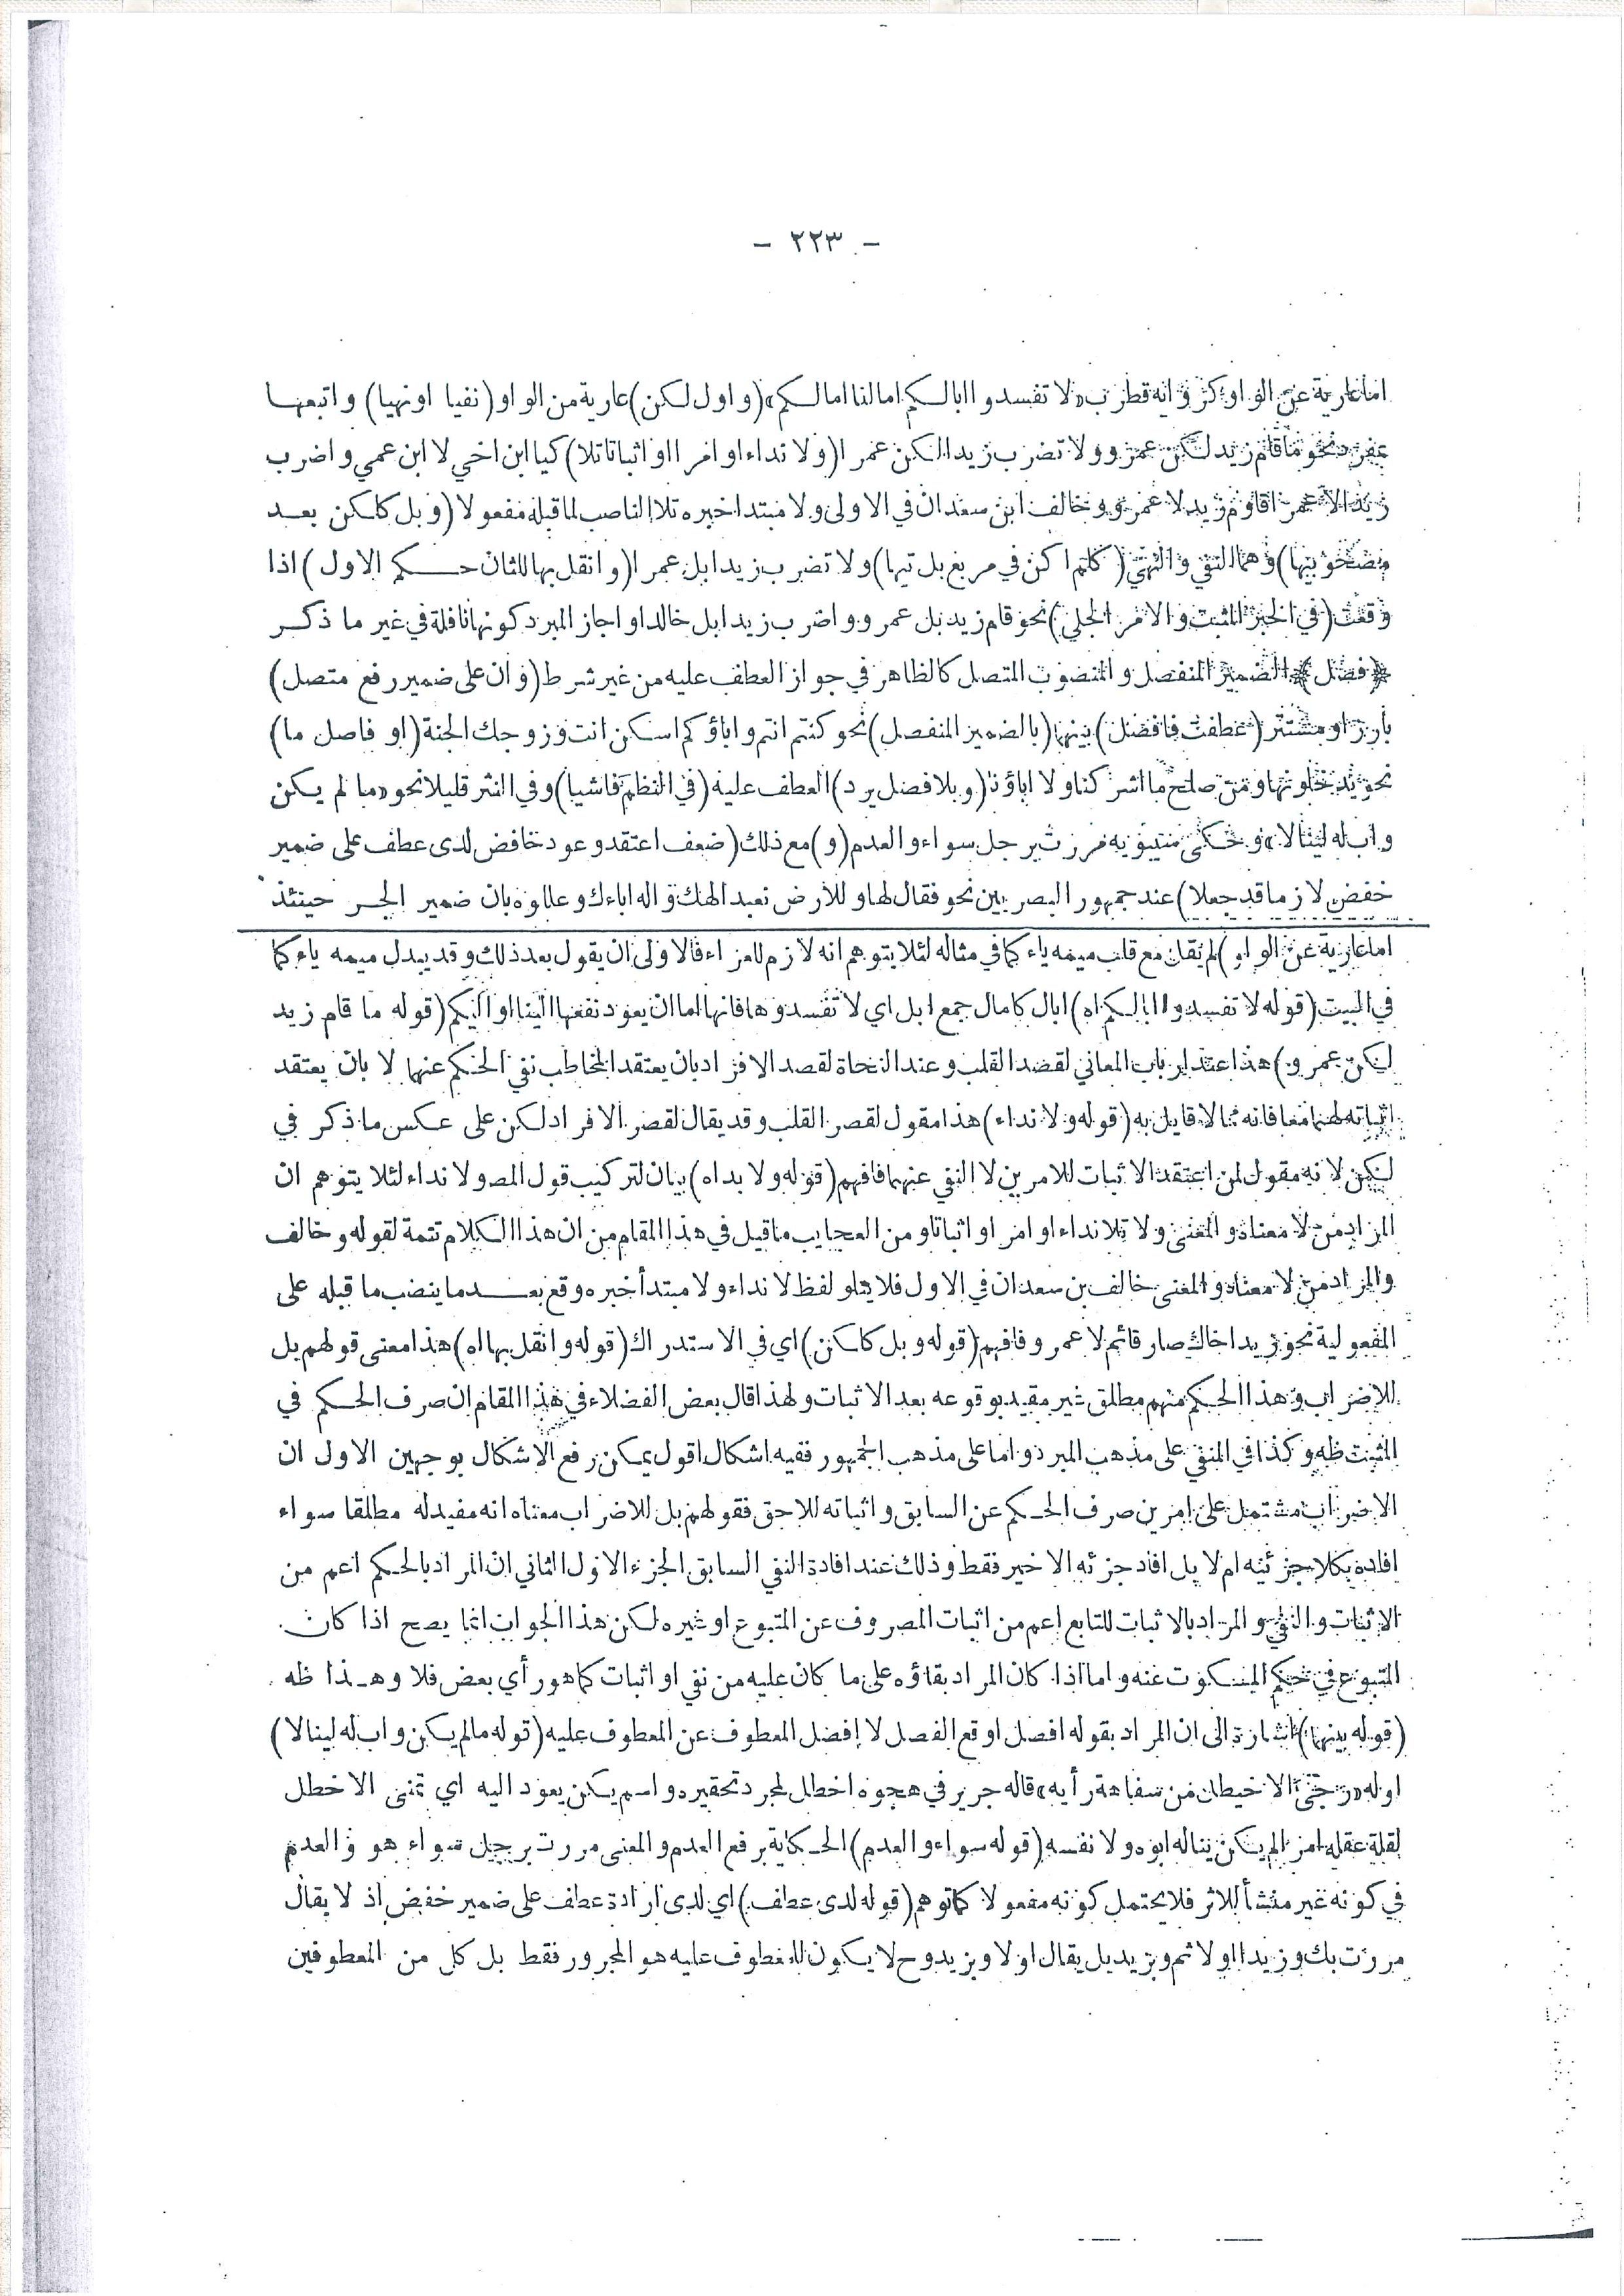 - ٢٢٣ -
اما عارية عن الواو كرواية قطرب «لا تفسدوا ابالكم امالنا امالكم» (و اول لكن) عارية من الواو (نفيا او نهيا) و اتبعها
بمفرد نحو ما قام زيد لكن عمرو و لا تضرب زيدا لكن عمرا (و لا نداء او امرا او اثباتا تلا) كيا ابن اخي لا ابن عمي و اضرب
زيدا لا عمرا قام زيد لا عمرو و خالف ابن سعدان في الاولى و لا مبتدا خبره تلا الناصب لما قبله مفعولا (و بل كلكن بعد
مصحوبيها) و هما النفي و النهي (كلم اكن في مربع بل تيها) و لا تضرب زيدا بل عمرا (و انقل بها للثان حكم الاول) اذا
وقعت (في الخبر المثبت و الامر الجلي) نحو قام زيد بل عمرو و اضرب زيدا بل خالدا و اجاز المبرد كونها ناقلة في غير ما ذكر
﴿فصل﴾ الضمير المنفصل و المنصوب المتصل كالظاهر في جواز العطف عليه من غير شرط (و ان على ضمير رفع متصل)
بارز او مستتر (عطفت فافصل) بينهما (بالضمير المنفصل) نحو كنتم انتم و اباؤكم اسكن انت و زوجك الجنة (او فاصل ما)
نحو يدخلونها و من صلح ما اشركنا و لا اباؤنا (و بلا فصل يرد) العطف عليه (في النظم فاشيا) و في النثر قليلا نحو «ما لم يكن
و اب له لينالا» و حكى سيبويه مررت برجل سواء و العدم (و) مع ذلك (ضعف اعتقد و عود خافض لدى عطف على ضمير
خفض لازما قد جعلا) عند جمهور البصريين نحو فقال لها و للارض نعبد الهك و اله اباءك و عللوه بان ضمير الجر حينئذ
اما عارية عن الواو) لم يقل مع قلب ميمه ياء كما في مثاله لئلا يتوهم انه لازم للعراء فالاولى ان يقول بعد ذلك و قد يبدل ميمه ياء كما
في البيت (قوله لا تفسدوا ابالكم اه) ابال كامال جمع ابل اي لا تفسدوها فانها اما ان يعود نفعها الينا او اليكم (قوله ما قام زيد
لكن عمرو) هذا عند ارباب المعاني لقصد القلب و عند النحاة لقصد الافراد بان يعتقد المخاطب نفي الحكم عنهما لا بان يعتقد
اثباته لهما معا فانه مما لا قايل به (قوله و لا نداء) هذا مقول لقصر القلب و قد يقال لقصر الافراد لكن على عكس ما ذكر في
لكن لانه مقول لمن اعتقد الاثبات للامرين لا النفي عنهما فافهم (قوله و لا بداه) بيان لتركيب قول المص و لا نداء لئلا يتوهم ان
المراد من لا معناه و المغنى و لا تلا نداء او امر او اثباتا و من العجايب ما قيل في هذا المقام من ان هذا الكلام تتمة لقوله و خالف
و المراد من لا معناه و المغنى خالف بن سعدان في الاول فلا يتلو لفظ لا نداء و لا مبتدأ خبره وقع بعد ما ينصب ما قبله على
المفعولية نحو زيدا خالك صار قائم لا عمرو فافهم (قوله و بل كلكن) اي في الاستدراك (قوله و انقل بها اه) هذا معنى قولهم بل
للاضراب و هذا الحكم منهم مطلق غير مقيد بوقوعه بعد الاثبات و لهذا قال بعض الفضلاء في هذا المقام ان صرف الحكم في
المثبت ظه و كذا في المنفي على مذهب المبرد و اما على مذهب الجمهور ففيه اشكال اقول يمكن رفع الاشكال بوجهين الاول ان
الاضراب مشتمل على امرين صرف الحكم عن السابق و اثباته للاحق فقولهم بل للاضراب معناه انه مفيد له مطلقا سواء
افاده بكلا جزئيه ام لا بل افاد جزئه الاخير فقط و ذلك عند افادة النفي السابق الجزء الاول الثاني ان المراد بالحكم اعم من
الاثبات و النفي و المراد بالاثبات للتابع اعم من اثبات المصروف عن المتبوع او غيره لكن هذا الجواب انما يصح اذا كان
المتبوع في حكم المسكوت عنه و اما اذا كان المراد بقاؤه على ما كان عليه من نفي او اثبات كما هو رأي بعض فلا و هذا ظه
(قوله بينهما) اشارة الى ان المراد بقوله افصل اوقع الفصل لا افصل المعطوف عن المعطوف عليه (قوله ما لم يكن و اب له لينالا)
اوله «رجى الاخيطل من سفاهة رأيه» قاله جرير في هجوه اخطل لمجرد تحقيره و اسم يكن يعود اليه اي تمنى الاخطل
لقلة عقله امرا لم يكن يناله ابوه و لا نفسه (قوله سواء و العدم) الحكاية برفع العدم و المعنى مررت برجل سواء هو و العدم
في كونه غير منشأ للاثر فلا يحتمل كونه مفعولا كما توهم (قوله لدى عطف) اي لدى ارادة عطف على ضمير خفض اذ لا يقال
مررت بك و زيدا اولا ثم و بزيد بل يقال اولا و بزيد و ح لا يكون للمعطوف عليه هو المجرور فقط بل كل من المعطوفين